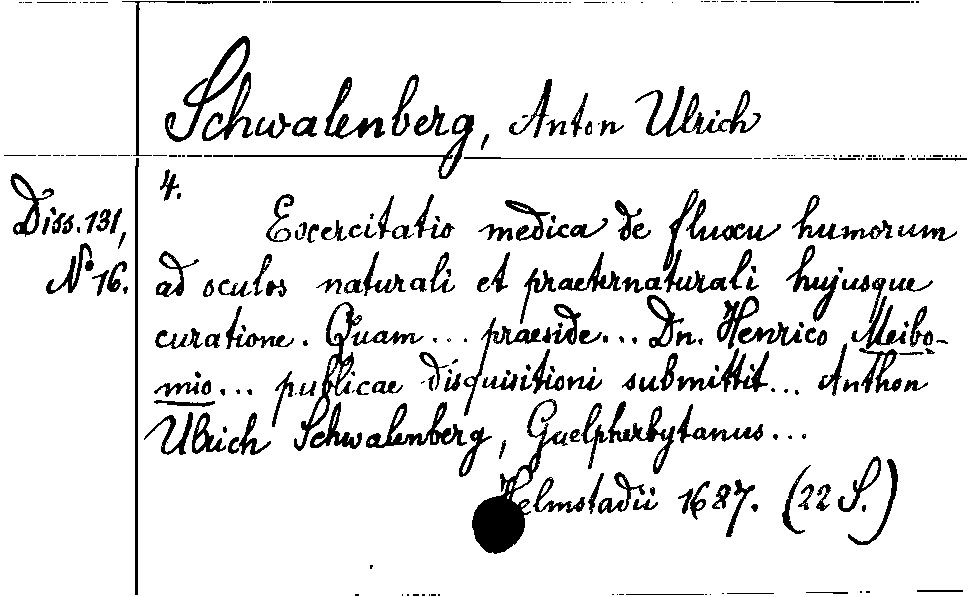 Schwalenberg, Anton Ulrich
Diss. 131,
No 16.
4.
Exercitatio medica de fluxu humorum
ad oculos naturali et praeternaturali hujusque
curatione. Quam... praeside... Dn. Henrico Meibo-
mio... publicae disquisitioni submittit... Anthon
Ulrich Schwalenberg, Guelpherbytanus...
Helmstadii 1687. (22 S.)